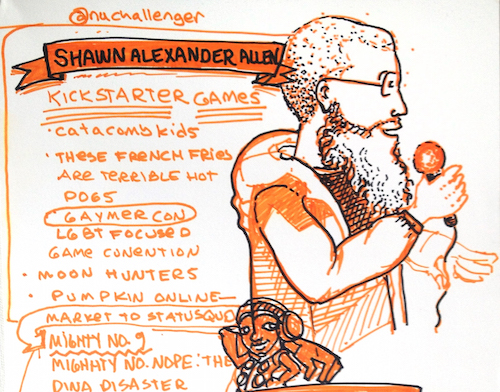 @nuchallenger
SHAWN ALEXANDER ALLEN
KICKSTARTER GAMES
• catacomb kids
• THESE FRENCH FRIES
ARE TERRIBLE HOT
POGS
GAYMERCON
LGBT FOCUSED
GAME CONENTION
• MOON HUNTERS
• PUMPKIN ONLINE—
MARKET TO STATUSQUO
MIGHTY NO. 9
MIGHATY NO. NOPE: THE
DINA DISASTER